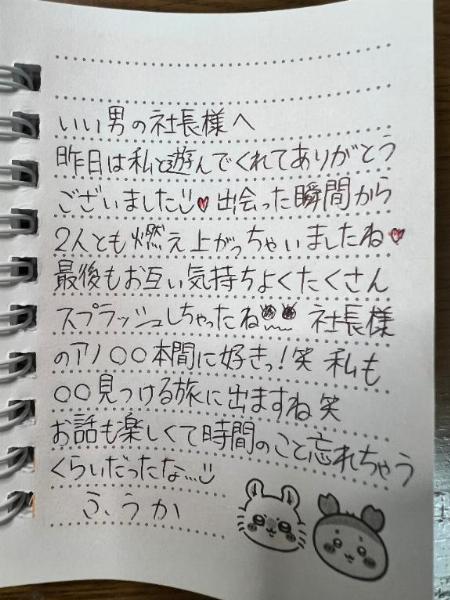 いい男の社長様へ
昨日は私と遊んでくれてありがとう
ございました♥出会った瞬間から
2人とも燃え上がっちゃいましたね♥
最後もお互い気持ちよくたくさん
スプラッシュしちゃったね 社長様
のアノ○○本間に好きっ!笑 私も
○○見つける旅に出ますね笑
お話も楽しくて時間のこと忘れちゃう
くらいだったな…
ふうか